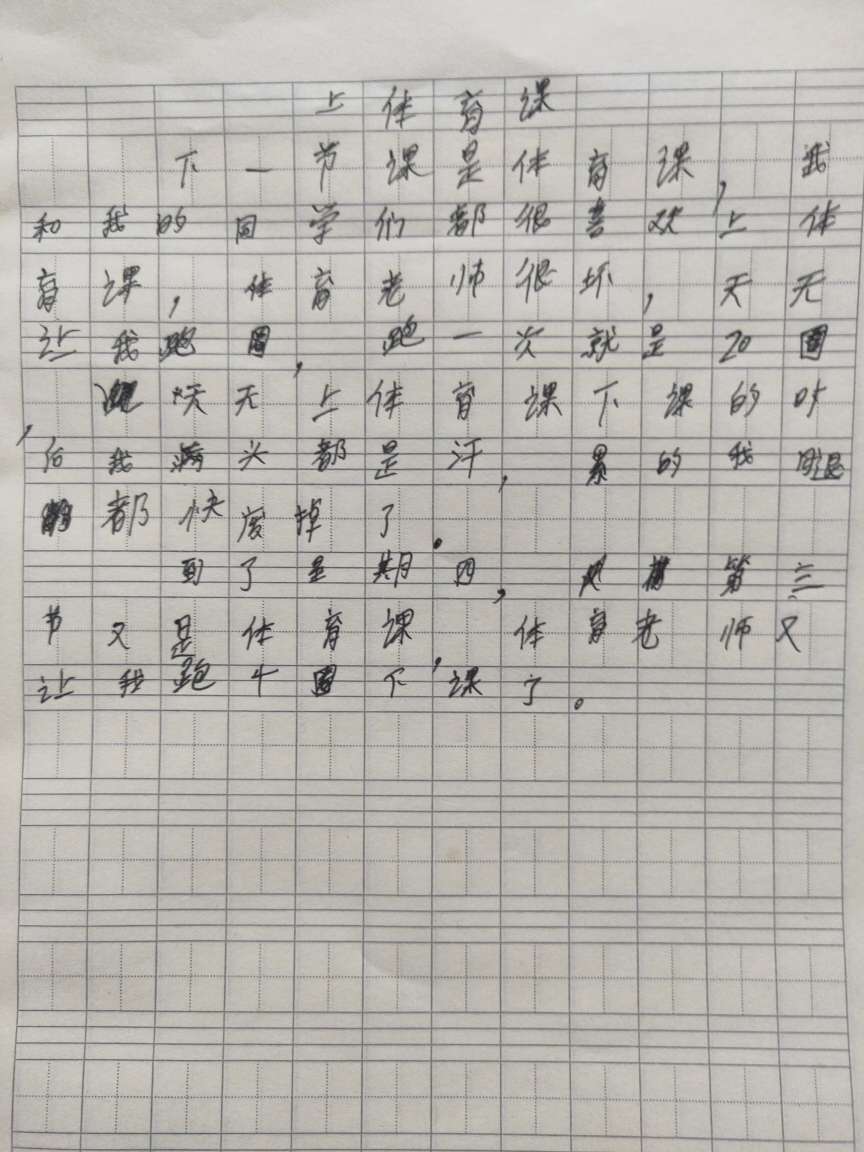 上体育课
下一节课是体育课，我
和我的同学们都很喜欢上体
育课，体育老师很坏，天天
让我跑圈，跑一次就是20圈
，天天上体育课下课的时
后我满头都是汗，累的我腿
都快废掉了。
到了星期四，第三
节又是体育课，体育老师又
让我跑十圈下课了。